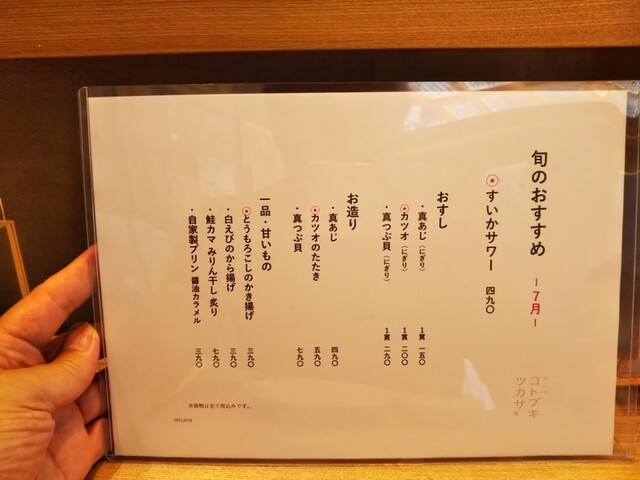 旬のおすすめ
ー7月ー
すいかサワー 四九〇
おすし
・真あじ（にぎり） 1貫 一五〇
カツオ（にぎり） 1貫 二〇〇
・真つぶ貝（にぎり） 1貫 二九〇
お造り
・真あじ 四九〇
カツオのたたき 五九〇
・真つぶ貝 七九〇
一品・甘いもの
とうもろこしのかき揚げ 三九〇
・白えびのから揚げ 三九〇
・鮭カマ みりん干し 炙り 七九〇
・自家製プリン 醤油カラメル 三九〇
※価格は全て税込みです。
コトブキ
ツカサ